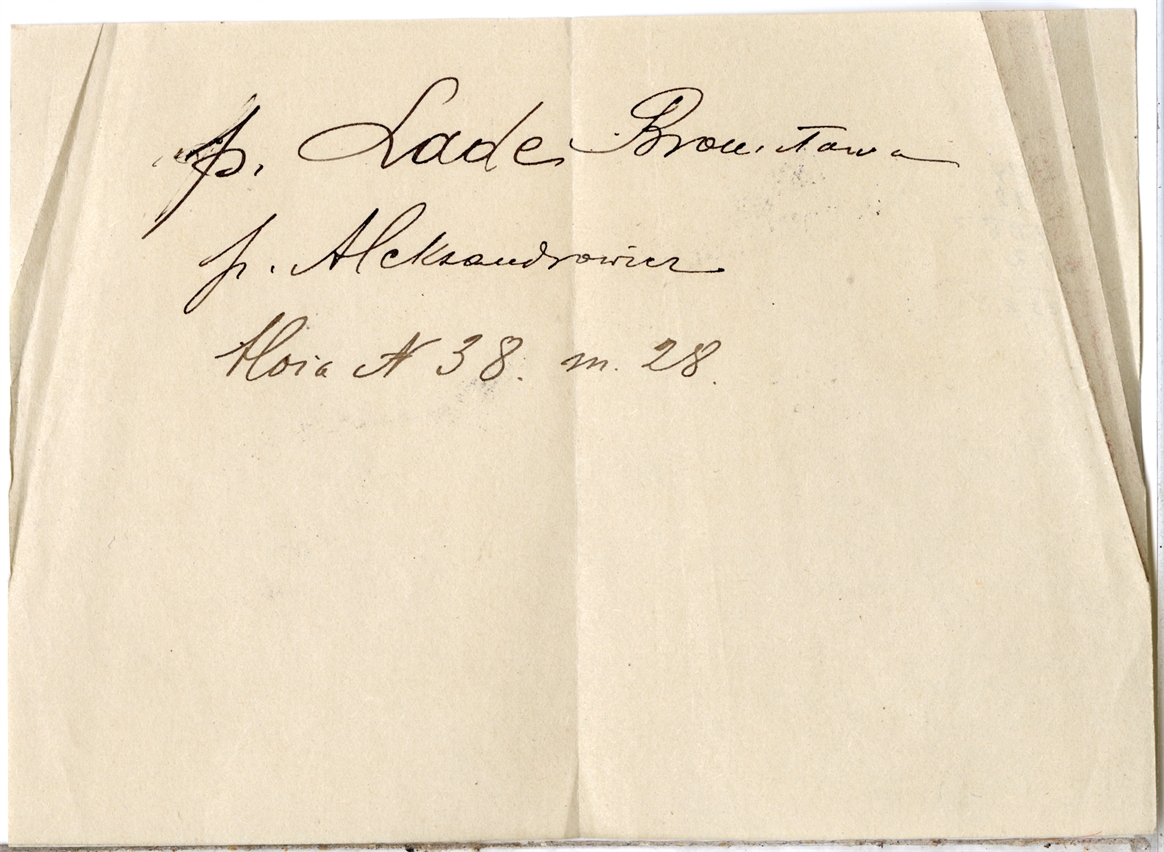 p. Lade Bronisława
p. Aleksandrowicz
Hoża N 38. m. 28.